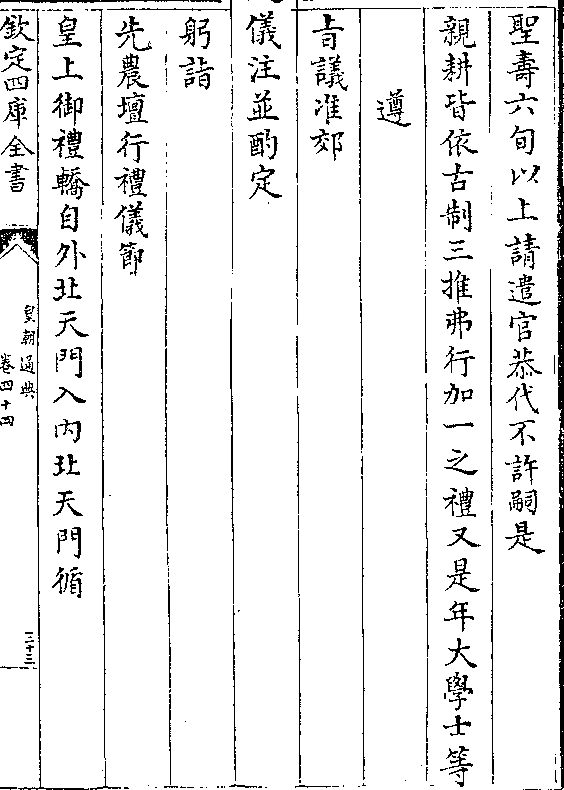 聖壽六旬以上請遣官恭代不許嗣是
親耕皆依古制三推弗行加一之禮又是年大學士等
遵
旨議准郊
儀注並酌定
躬詣
先農壇行禮儀節
皇上御禮轎自外北天門入内北天門循
欽定四庫全書
皇朝通典
卷四十四
三十三